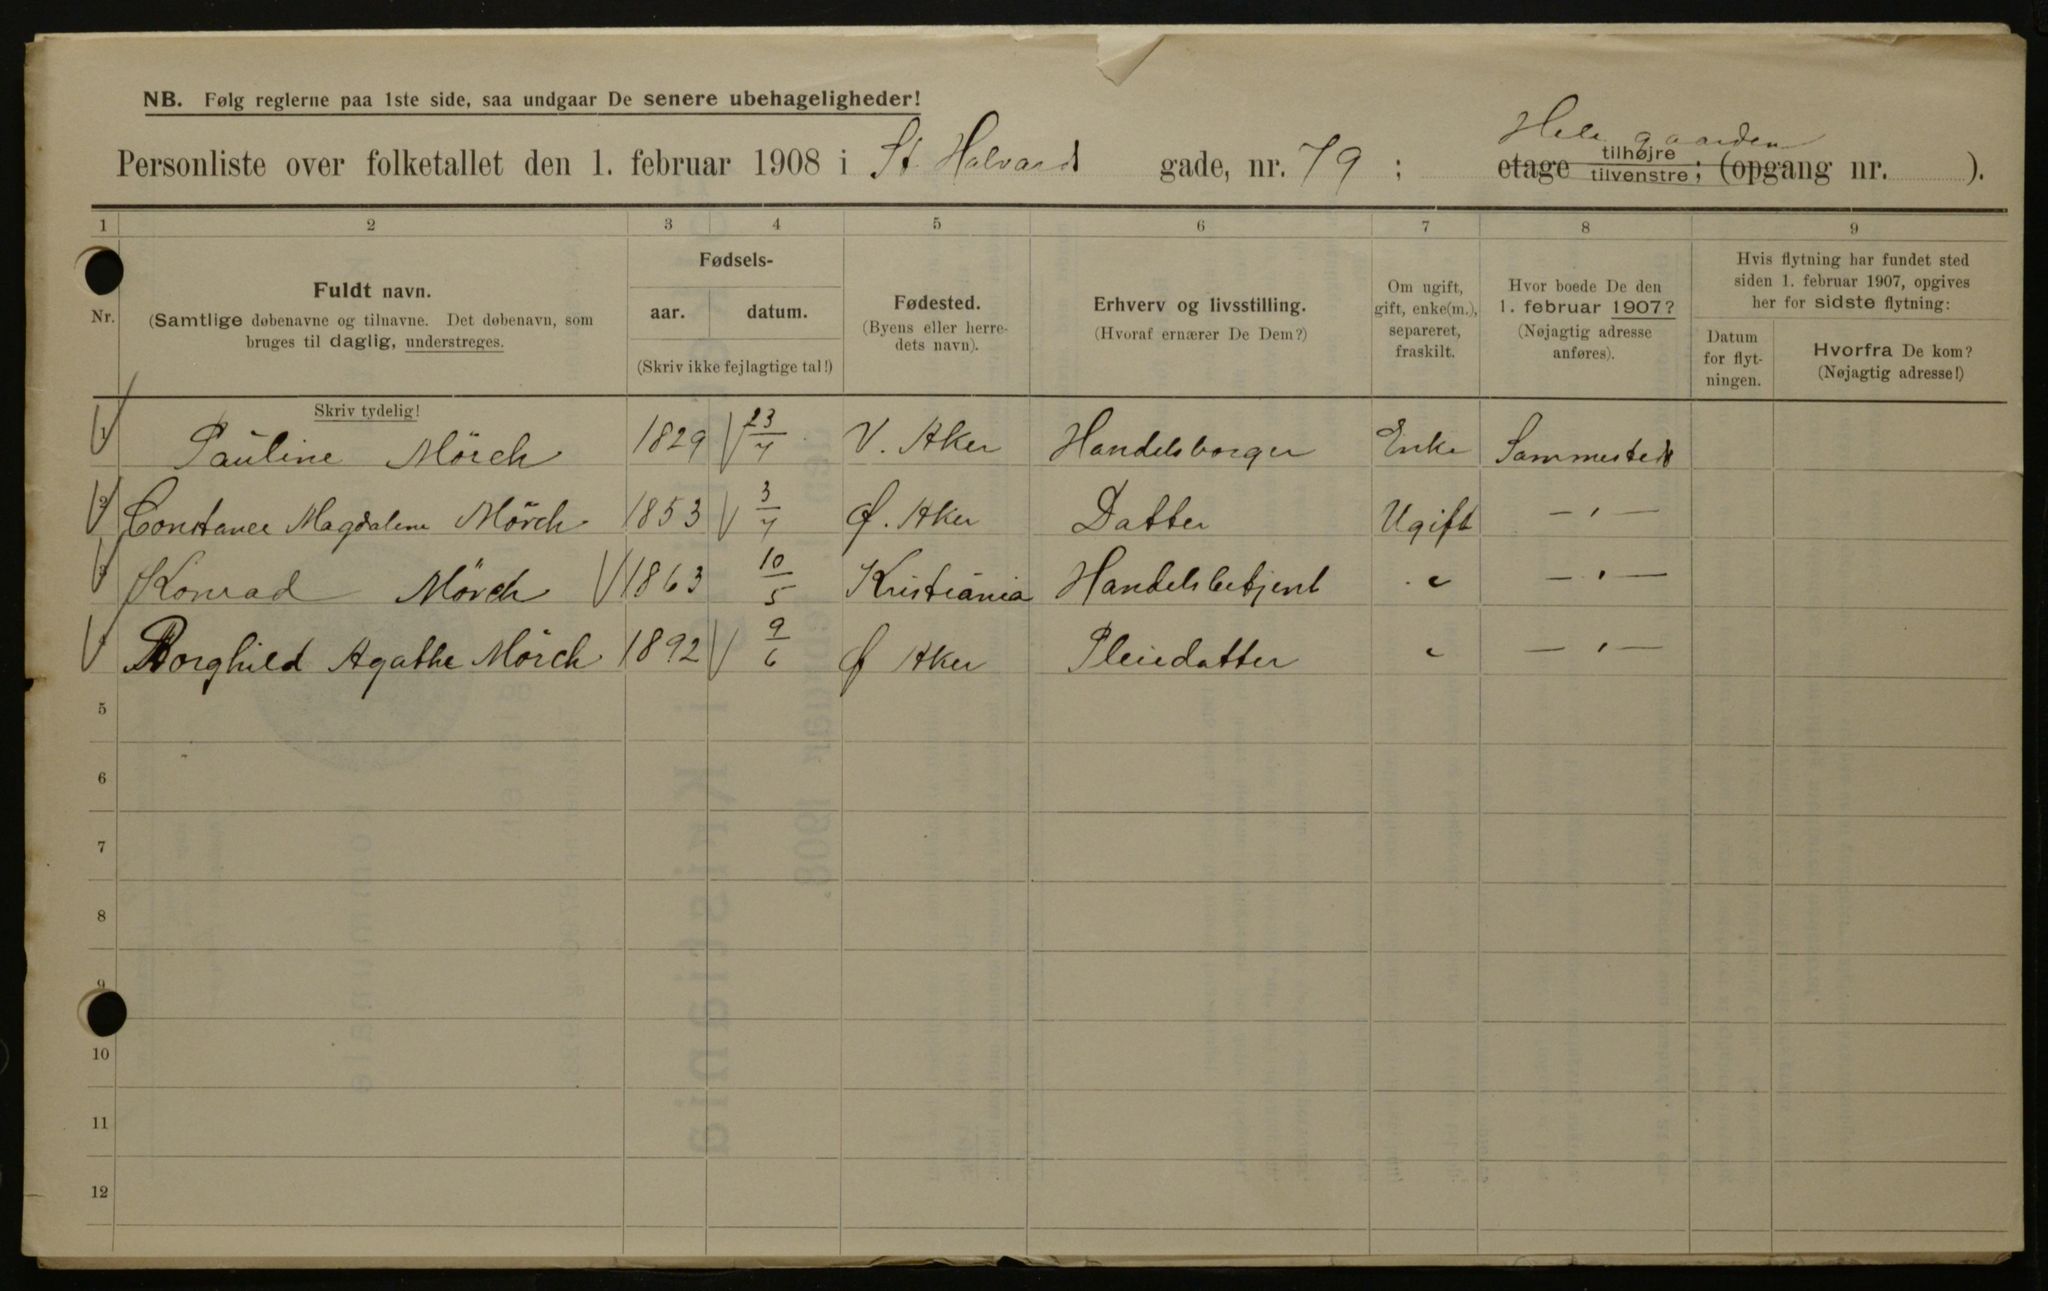 NB. Følg reglerne paa 1ste side, saa undgaar De senere ubehageligheder!
Hele gaarden
Personliste over folketallet den 1. februar 1908 i St. Halvards gade, nr. 79 ; etage tilhøjre tilvenstre ; (opgang nr. ).
1 2 3 4 5 6 7 8 9
Nr.
Fuldt navn.
(Samtlige døbenavne og tilnavne. Det døbenavn, som
bruges til daglig, understreges.
Skriv tydelig!
Fødsels-
aar. datum.
(Skriv ikke fejlagtige tal!)
Fødested.
(Byens eller herre-
dets navn).
Erhverv og livsstilling.
(Hvoraf ernærer De Dem?)
Om ugift,
gift, enke(m.),
separeret,
fraskilt.
Hvor boede De den
1. februar 1907?
(Nøjagtig adresse
anføres).
Hvis flytning har fundet sted
siden 1. februar 1907, opgives
her for sidste flytning:
Datum
for flyt-
ningen.
Hvorfra De kom?
(Nøjagtig adresse!)
1 Pauline Mörch 1829 23/7 V. Aker Handelsborger Enke Sammesteds
2 Constance Magdalene Mörch 1853 3/7 Ø. Aker Datter Ugift — " —
3 Konrad Mörch 1863 10/5 Kristiania Handelsbetjent " — " —
Borghild Agathe Mörch 1892 9/6 Ø Aker Pleiedatter " — " —
5
6
7
8
9
10
11
12